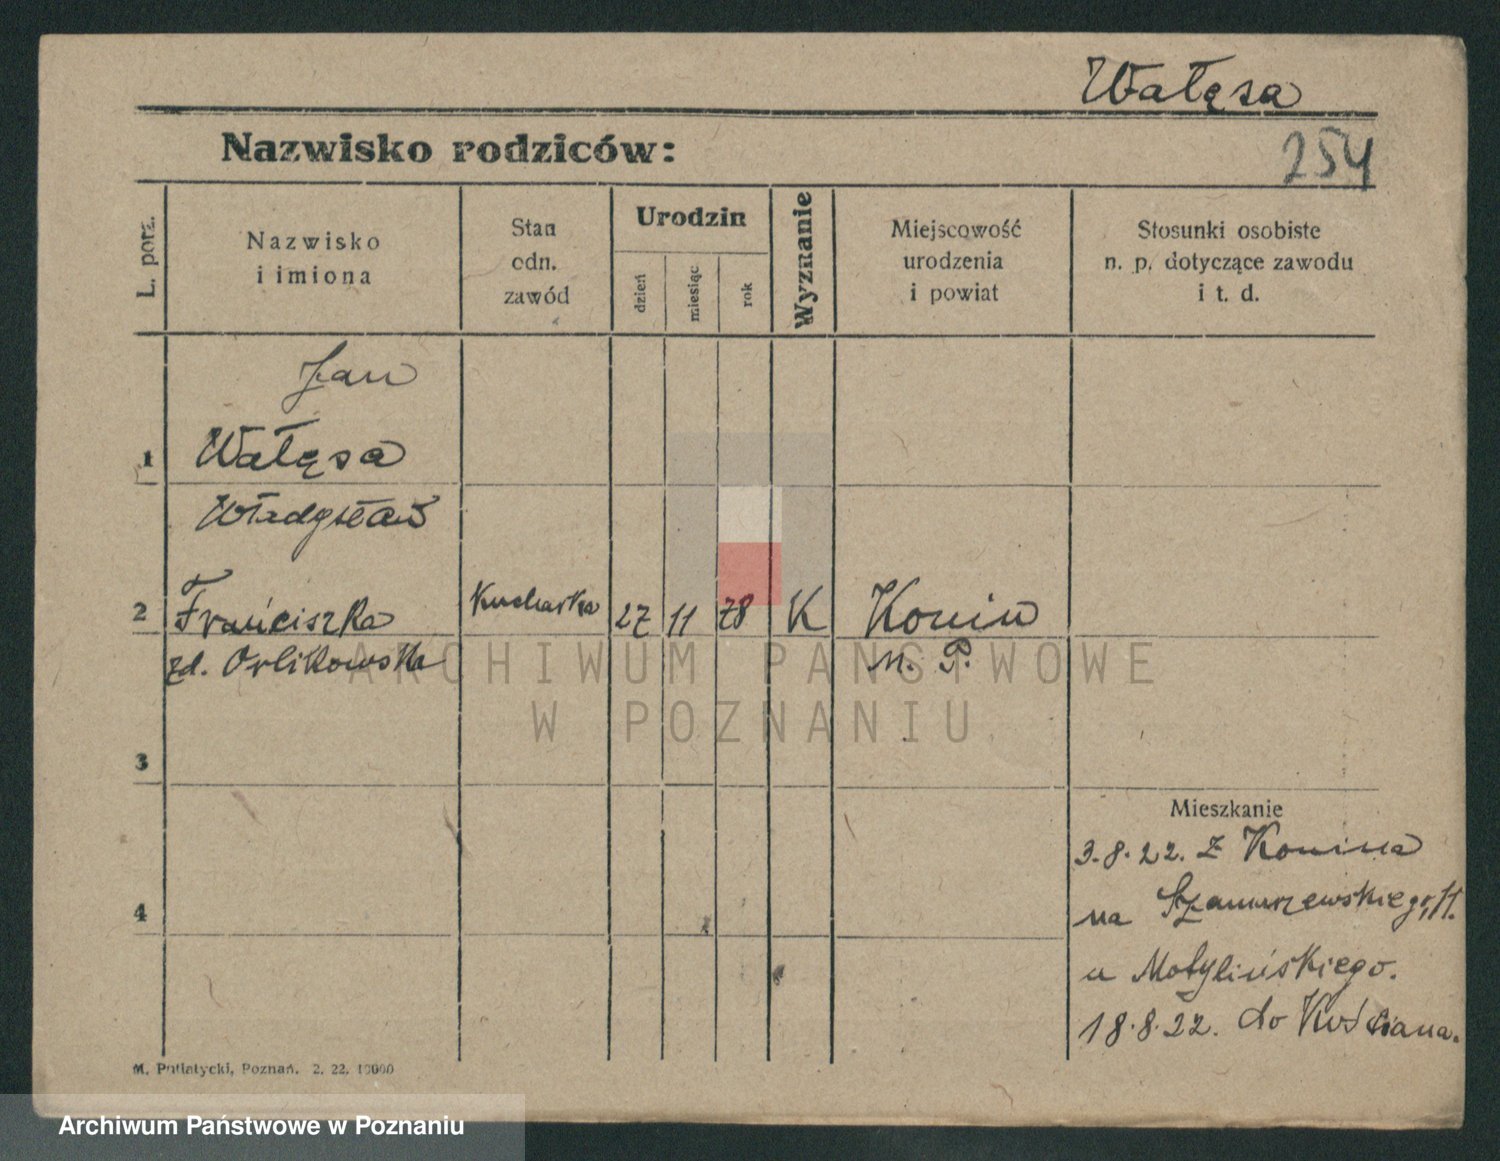 Wałęsa
Nazwisko rodziców:
254
L. porz.
Nazwisko
i imiona
Stan
odn.
zawód
Urodzin
dzień
miesiąc
rok
Wyznanie
Miejscowość
urodzenia
i powiat
Stosunki osobiste
n. p. dotyczące zawodu
i t. d.
Jan
1 Wałęsa
Władysław
2 Franciszka Kucharka 27 11 78 K Konin
zd. Orlikowska n. P.
ARCHIWUM PAŃSTWOWE
W POZNANIU
3
Mieszkanie
3.8.22. z Konina
4
na Szamarzewskiego, 11.
u Motylińskiego.
18.8.22. do Kościana.
M. Putiatycki, Poznań. 2. 22. 10000
Archiwum Państwowe w Poznaniu